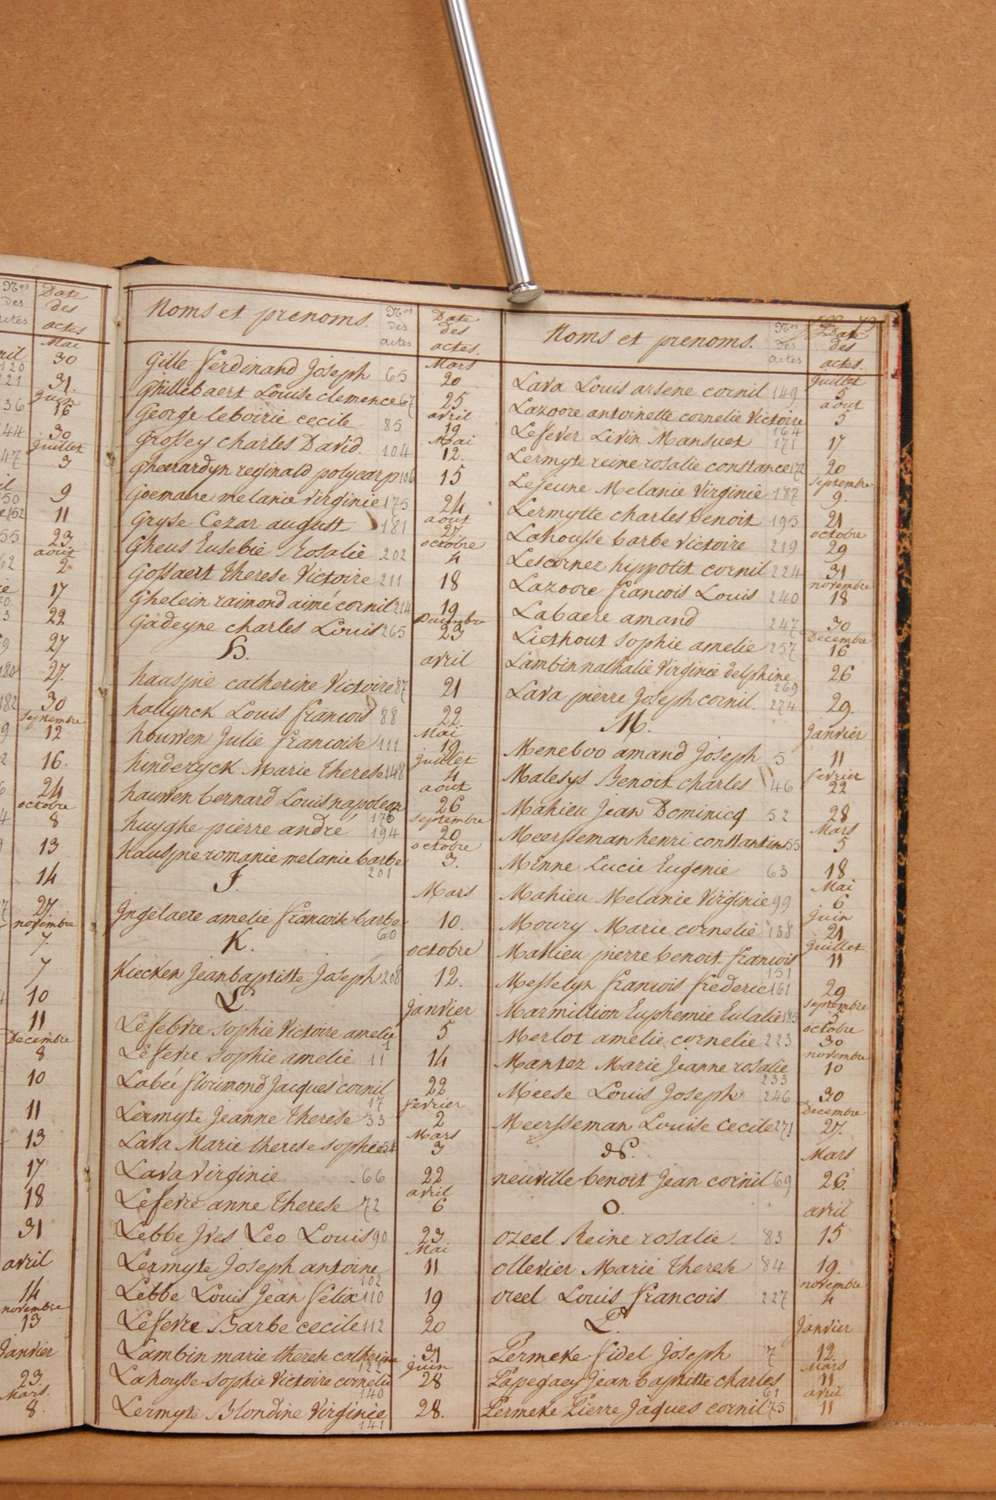 Nos
des
actes
Date
des
actes
Mai
30
31
Juin
16
30
Juillet
3
9
11
23
août
2
17
22
27
27
30
Septembre
12
16
24
octobre
8
13
14
27
novembre
7
7
10
11
Décembre
8
10
11
13
17
18
31
avril
14
novembre
13
Janvier
23
Mars
8
Noms et prenoms. Nos des actes Date des actes.
Mars
Gille Ferdinand Joseph 65 20
Ghillebaert Louise Clemence 67 25
avril
George leboirie cecile 85 19
Mai
Grossey charles David 104 12.
Gheerardyn reginald polycarp 106 15
Goemaere melanie virginie 175 24
août
Gryse Cezar august 181 27
octobre
Gheus Eusebie Rosalie 202 4
Gossaert therese Victoire 211 18
Ghelein raimond aimé cornil 214 19
Decembre
Gadeyne charles Louis 265 23
H.
avril
hauspie catherine Victoire 87 21
hollynck Louis francois 88 22
Mai
houwen Julie francoise 111 19
Juillet
hinderyck Marie therese 148 4
août
hauwen bernard Louis napoleon 176 26
septembre
huyghe pierre andré 194 20
octobre
hauspie romanie melanie barbe 201 3.
J.
Mars
Ingelaere amelie francoise barbe 60 10.
K.
octobre
Kiecken Jean baptiste Joseph 208 12.
L.
Janvier
Lefebvre Sophie Victoire amelie 1 5
Lefevre Sophie amelie 11 14
Labeé florimond Jacques cornil 17 22
fevrier
Lermyte Jeanne therese 33 2
Mars
Lava Marie therese sophie 54 3
Lava virginie 66 22
avril
Lefevre anne therese 72 6
Lebbe Ives Leo Louis 90 23
Mai
Lermyte Joseph antoine 102 11
Lebbe Louis Jean felix 110 19
Lefevre Barbe cecile 112 20
Lambin marie therese catherine 31
Juin
Lahousse Sophie Victoire cornelie 140 28
Lermyte Blondine Virginie 141 28.
Noms et prenoms. Nos des actes Date des actes.
Juillet
Lava Louis arsene cornil 149 5
août
Lazoore antoinette cornelie Victoire 164 5
Lefever Livin Mansuet 171 17
Lermyte reine rosalie constance 172 20
septembre
Lejeune Melanie Virginie 187 9.
Lermytte charles Benoit 195 21
octobre
Lahousse barbe victoire 219 29
Lescornez hyppolit cornil 224 31
novembre
Lazoore francois Louis 240 18
Labaere amand 247 30
Decembre
Liethout sophie amelie 257 16
Lambin nathalie Virginie delphine 269 26
Lava pierre Joseph cornil 274 29.
M.
Janvier
Meneboo amand Joseph 5 11
fevrier
Malesys Benoit charles 46 22
Mahieu Jean Dominicq 52 28
Mars
Meersseman henri constantin 55 5
Minne Lucie Eugenie 63 18
Mai
Mahieu Melanie Virginie 99 6
Juin
Moury Marie cornelie 138 21
Juillet
Mahieu pierre benoit francois 151 11
Messelyn francois frederic 161 29
septembre
Marmillion Euphemie Eulalie 185 5
octobre
Merlot amelie cornelie 223 30
novembre
Mantez Marie Jeanne rosalie 233 10
Meese Louis Joseph 246 30
Decembre
Meersseman Louise cecile 271 27.
N.
Mars
neuville benoit Jean cornil 69 26
O.
avril
ozeel Reine rosalie 83 15
ollevier Marie therese 84 19
novembre
ozeel Louis francois 227 4
P.
Janvier
Permeke fidel Joseph 7 12
Mars
Papegaey Jean baptiste charles 61 11
avril
Permeke Pierre Jaques cornil 75 11